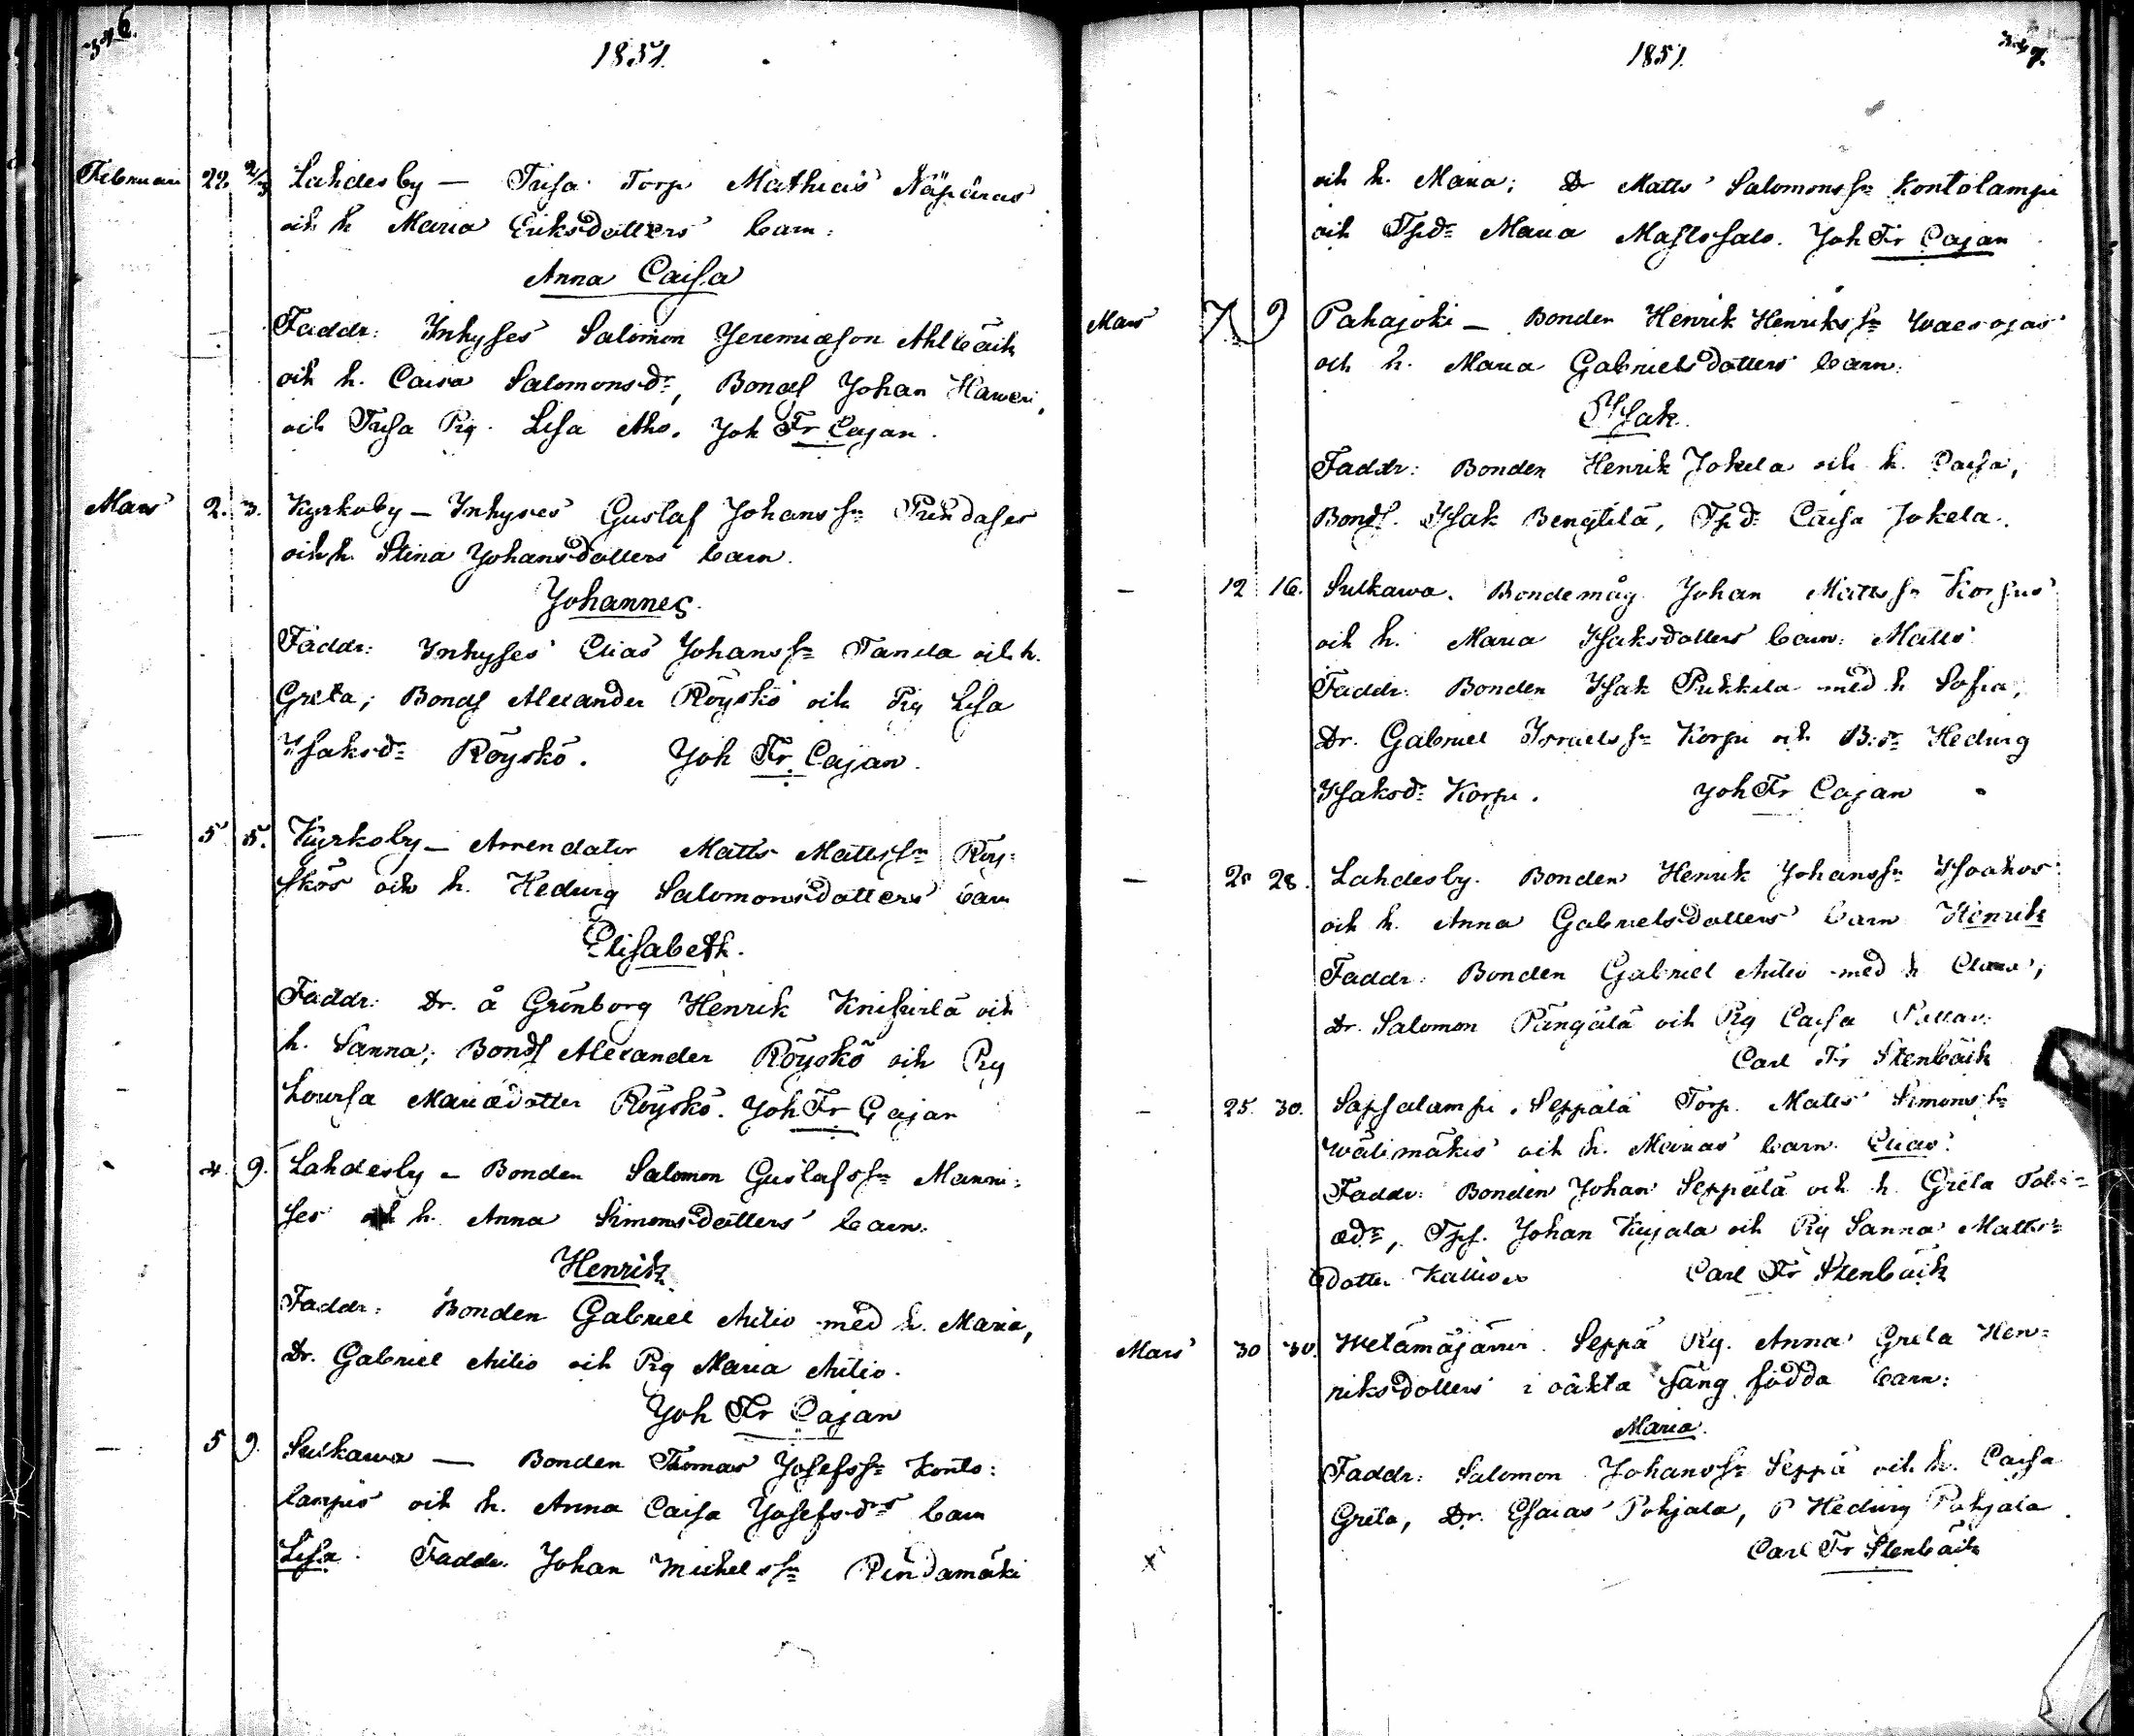 346.
1851.
Februari 22 2/3 Lahdesby — Taisa Torp Mathias Näpäräs
och h Maria Eriksdotters barn:
Anna Caisa
Faddr: Inhyses Salomon Jeremiæson Ahlbäck
och h. Caisa Salomonsdr, Bonds Johan Haweri,
och Taisa Pig. Lisa Aho. Joh Fr Cajan.
Mars 2. 3. Kyrkoby — Inhyses Gustaf Johansson
och h. Stina Johansdotters barn.
Johannes.
Faddr: Inhyses Elias Johansson Tanila och h.
Greta; Bonds Alexander Röyskö och Pig Lisa
Isaksdr Röyskö. Joh Fr. Cajan.
— 5 5. Kyrkoby — Arrendator Matts Mattsson Röy=
skös och h. Hedvig Salomonsdotters barn
Elisabeth.
Faddr: Dr. å Grönborg Henrik Knihtilä och
h. Sanna; Bonds Alexander Röyskö och Pig
Lovisa Mariædotter Röyskö. Joh Fr Cajan
4. 9. Lahdesby — Bonden Salomon Gustafsson Manni=
ses och h. Anna Simonsdotters barn:
Henrik
Faddr: Bonden Gabriel Autio med h. Maria,
Dr. Gabriel Autio och Pig Maria Autio.
Joh Fr Cajan
— 5 9. Sulkawa — Bonden Thomas Josefsson Konto=
lampis och h. Anna Caisa Josefsdrs barn
Lisa. Faddr. Johan Michelsson Rindamäki
1851.
347.
och h. Maria; Dr Matts Salomonsson Kontolampi
och Bpdr Maria Mastosalo. Joh Fr Cajan
Mars 7 9 Pahajoki — Bonden Henrik Henriksson
och h. Maria Gabrielsdotters barn:
Isak.
Faddr: Bonden Henrik Jokela och h. Caisa,
Bonds. Isak Bengtilä, Tpdr Caisa Jokela.
— 12 16. Sulkawa. Bondemåg Johan Mattsson Korpis
och h. Maria Isaksdotters barn: Matts
Faddr: Bonden Isak Pukkila med h Sofia,
Dr. Gabriel Israelsson Korpi och B:dr Hedvig
Isaksdr Korpi. Joh Fr Cajan
— 20 28. Lahdesby. Bonden Henrik Johansson Isoahos
och h. Anna Gabrielsdotters barn Henrik
Faddr: Bonden Gabriel Autio med h Clara,
Dr. Salomon Pängälä och Pig Caisa
Carl Fr Stenbäck
— 25. 30. Sapsalampi. Seppälä Torp. Matts Simonsson
Wälimäkis och h. Marias barn. Elias.
Faddr: Bonden Johan Seppälä och h. Greta Tobi=
ædr, Tps. Johan Kujala och Pig Sanna Matts=
dotter Kallio Carl Fr Stenbäck
Mars 30 30. Wetämäjärvi. Seppä Pig. Anna Greta Hen=
riksdotters i oäkta säng födda barn:
Maria.
Faddr: Salomon Johansson Seppä och h. Caisa
Greta, Dr. Esaias Pohjala, P Hedvig Pohjala.
Carl Fr Stenbäck
x